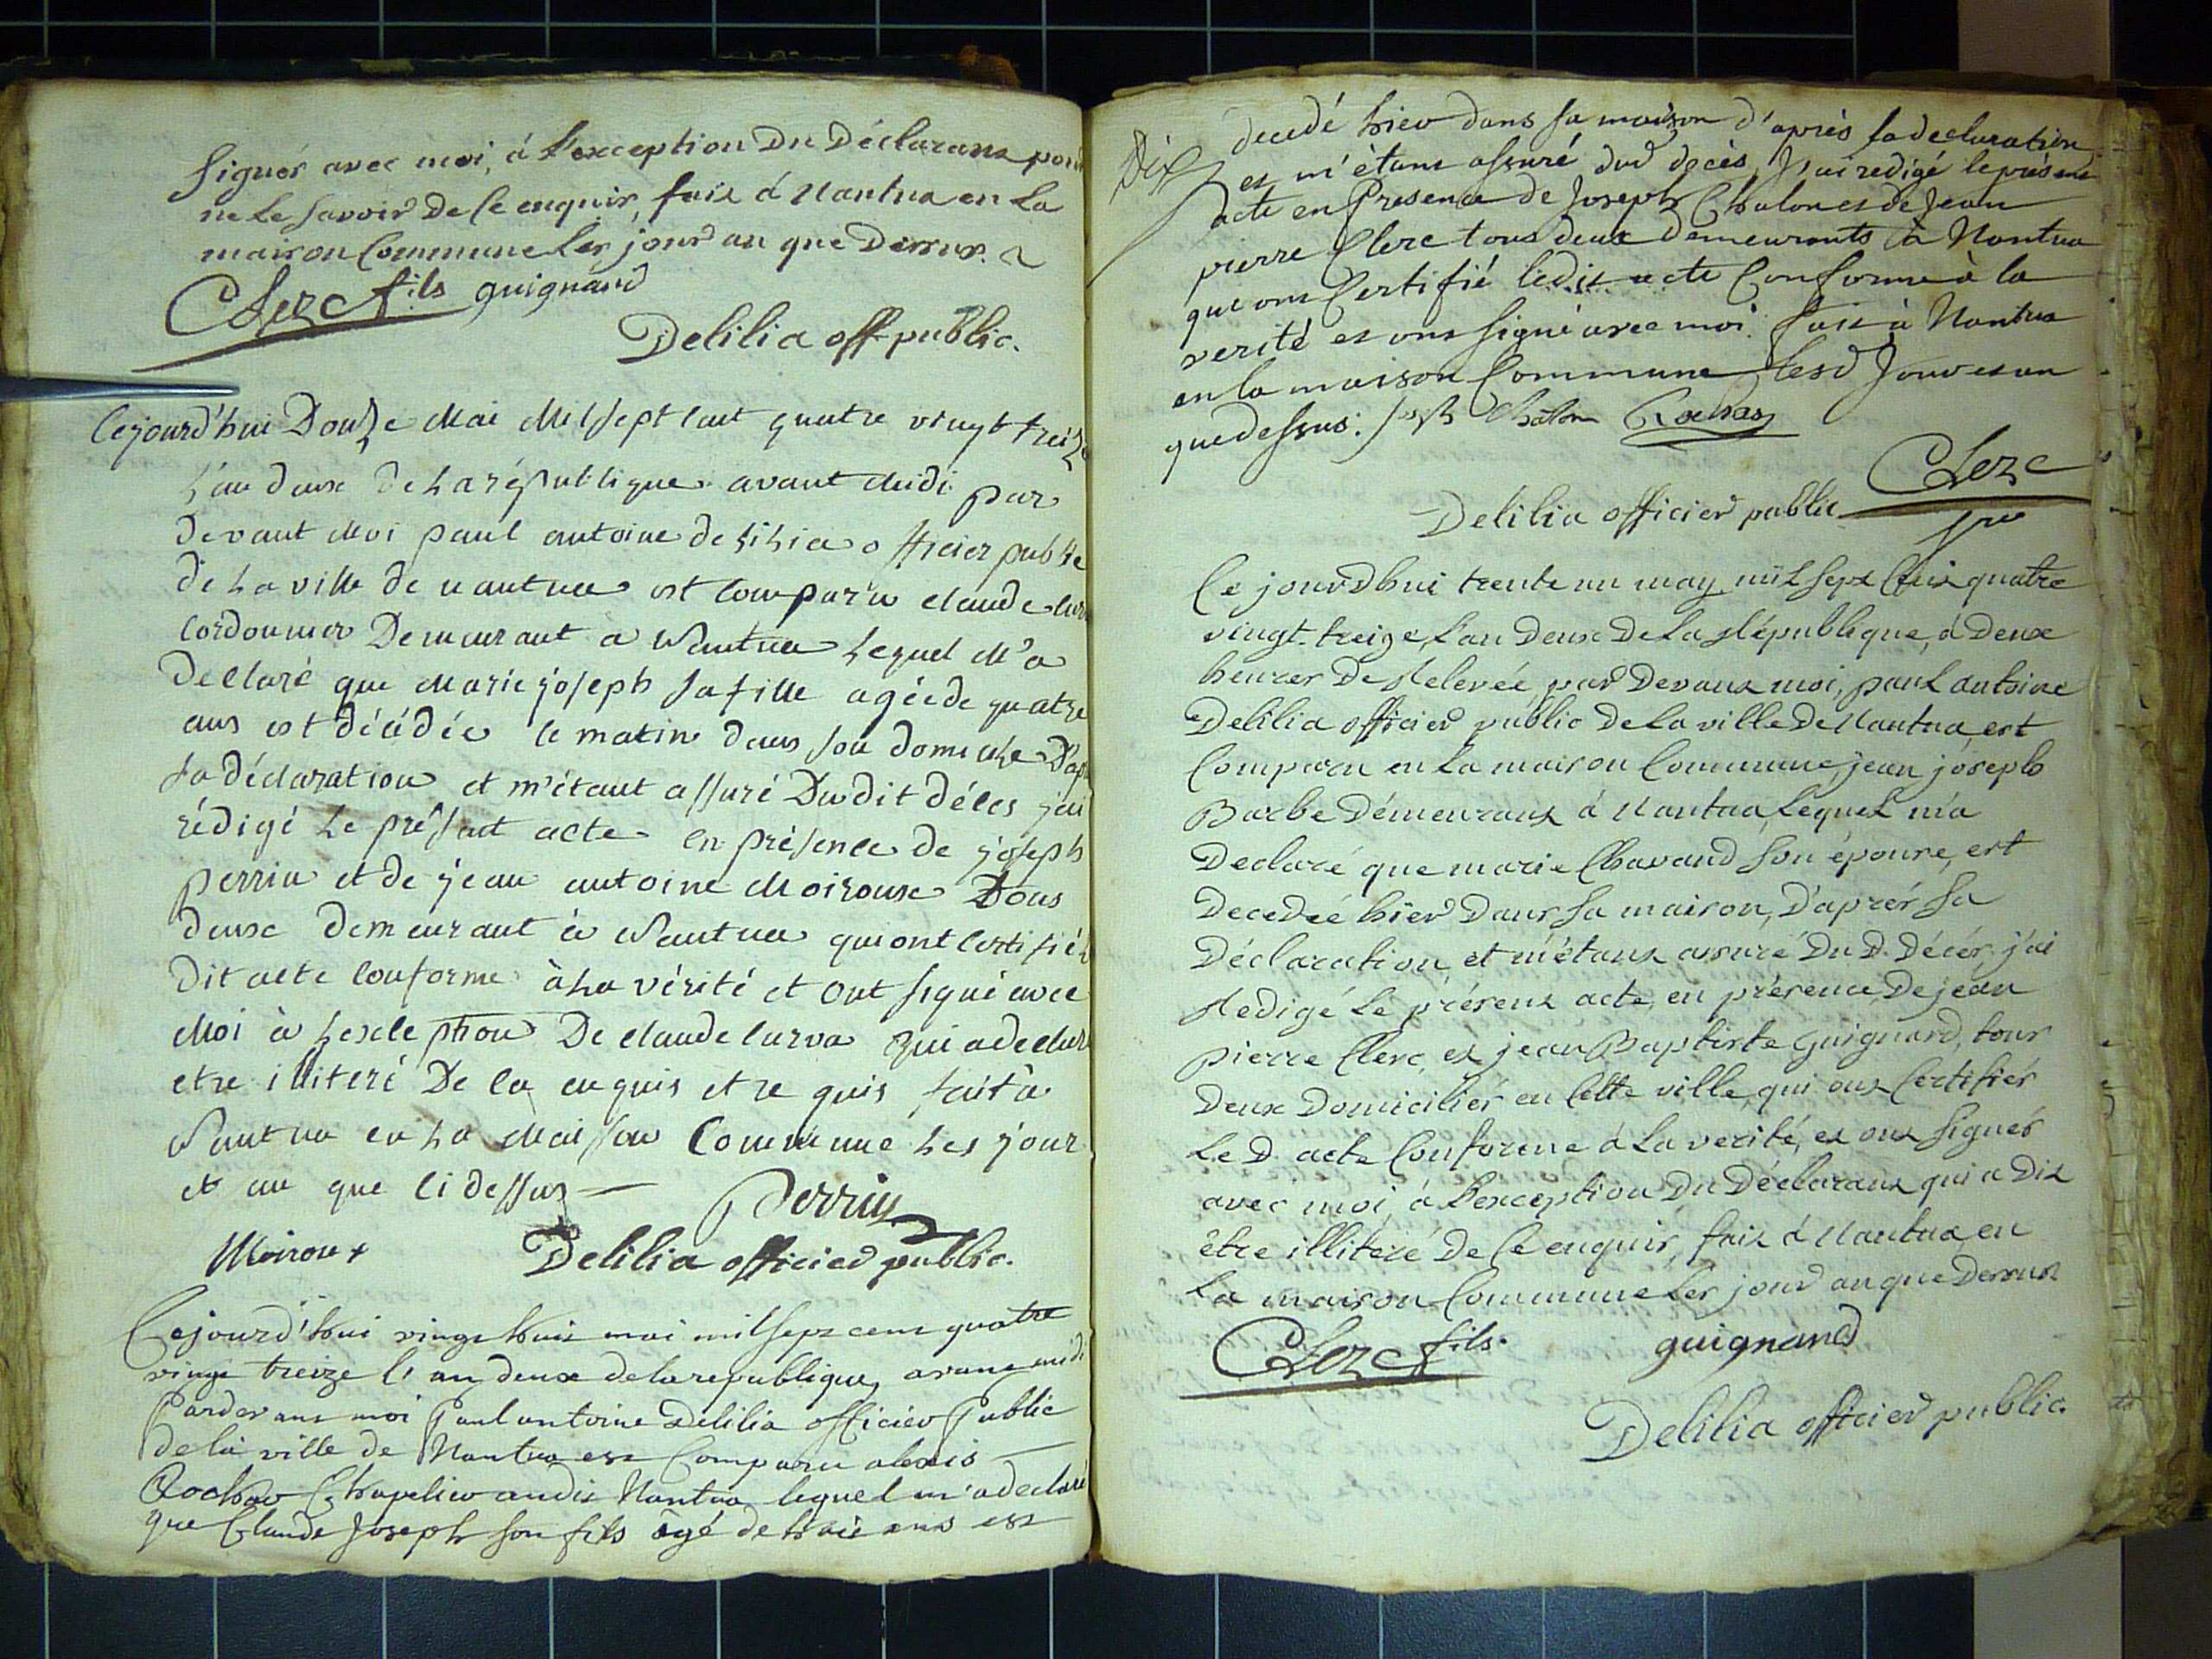 signés avec moi, à l'exception du déclarans pour
ne le savoir de ce enquis, fait à Nantua en la
maison Commune les jour an que dessus.
Clerc fils guignard
Delilia off public.
Cejourd'hui Douze Mai Mil sept cent quatre vingt treize
L'an deux de la république avant Midi par
devant Moi paul antoine delilia officier public
de la ville de nantua est comparu claude
Cordounier Demeurant à Nantua Lequel M'a
Déclaré que Marie joseph sa fille agée de quatre
ans est décédée le matin dans son domicile D'ap
sa déclaration et m'étant assuré Dudit décès j'ai
rédigé Le présant acte en présence de joseph
perrin et de jean antoine Moiroux Tous
deux demeurant à Nantua qui ont certifié
dit acte conforme à la vérité et ont signé avec
Moi à Lexception De claude curva qui a declar
etre illiteré De ce enquis et re quis fait à
Nantua en La Maison Commune Les jour
et an que ci dessus
Perrin
Moiroux Delilia officier public.
Cejourd'hui vingt huit mai mil sept cent quatre
vingt treize l'an deux de la republique avant midi
Pardevant moi Paul antoine Delilia officier Public
de la ville de Nantua est Comparu alexis
Rochas Chapelier audit Nantua lequel m'a declaré
que Claude Joseph son fils âgé de huit ans est
decedé hier dans sa maison d'après sa declaration
Dix et m'étant assuré dud decès, J'ai redigé le présent
acte en Presence de Joseph Chalon et de Jean
pierre Clerc tous deux demeurants à Nantua
qui ont Certifié ledit acte Conforme à la
verité et ont signé avec moi. fait à Nantua
en la maison Commune lesd Jour et an
que dessus. Jsph Chalon Rochas
Clerc
Delilia officier public
Ce jourdhui trente un may mil sept cent quatre
vingt-treize, l'an Deux De la République, à Deux
heures De Relevée, par Devant moi, paul antoine
Delilia officier public De la ville De Nantua, est
Comparu en la maison Commune, jean joseph
Barbe Démeurant à Nantua, lequel m'a
Declaré que marie Chavand son épouse, est
Decedée hier Dans sa maison, D'après sa
Déclaration, et m'étant assuré Du D. Décés, j'ai
Redigé le présent acte, en présence De jean
pierre Clerc, et jean Baptiste Guignard, tous
Deux Domiciliés en Cette ville, qui ont Certifiés
Le D. acte Conforme à la verité, et ont signés
avec moi, à l'exception Du Déclarant qui a Dit
être illiteré De Ce enquis, fait à Nantua en
La maison Commune Les jour an que Dessus
Clerc fils. guignard
Delilia officier public.